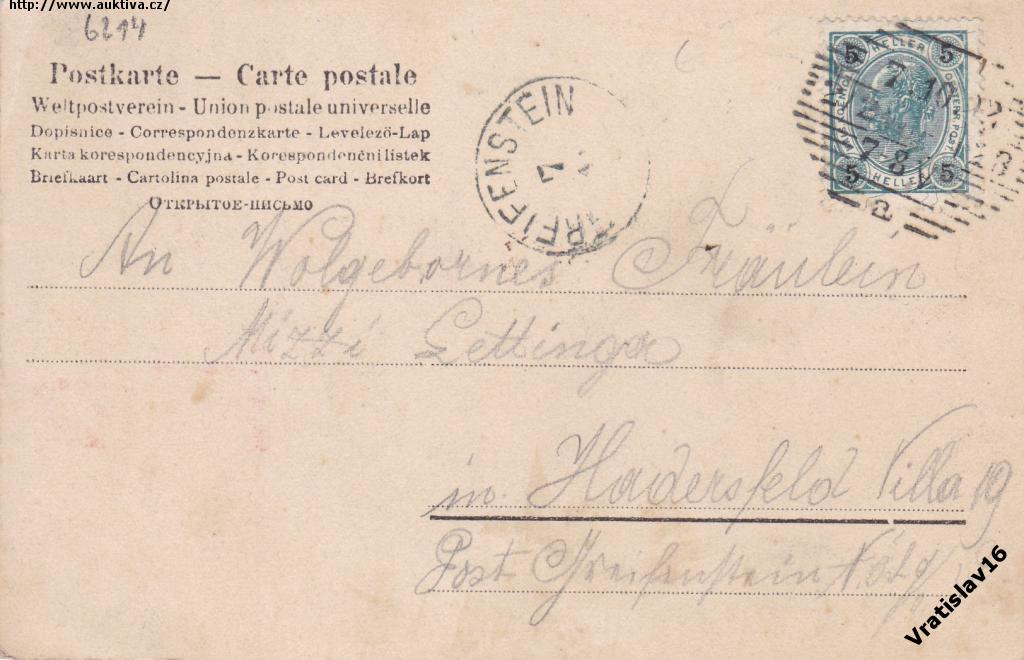 http://www.auktiva.cz/
6214
Postkarte — Carte postale
Weltpostverein - Union postale universelle
Dopisnice - Correspondenzkarte - Levelező-Lap
Karta korespondencyjna - Korespondenční lístek
Briefkaart - Cartolina postale - Post card - Brefkort
Открытое-письмо
GREIFENSTEIN
7
5 HELLER 5
5 HELLER 5
7 10
An Wolgebornes Fräulein
Mizzi Lettinger
in Hadersfeld Villa 19
Post Greifenstein
Vratislav16